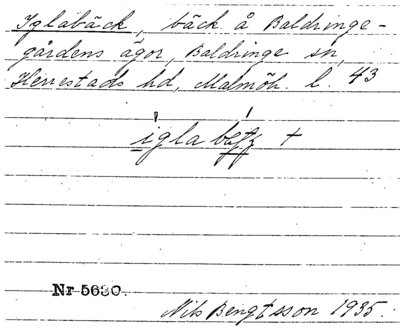 Iglabäck, bäck å Baldringe-
gårdens ägor, Baldringe sn,
Herrestads hd, Malmöh. l. 43
igla +
Nr 5630.
Nils Bengtsson 1935.